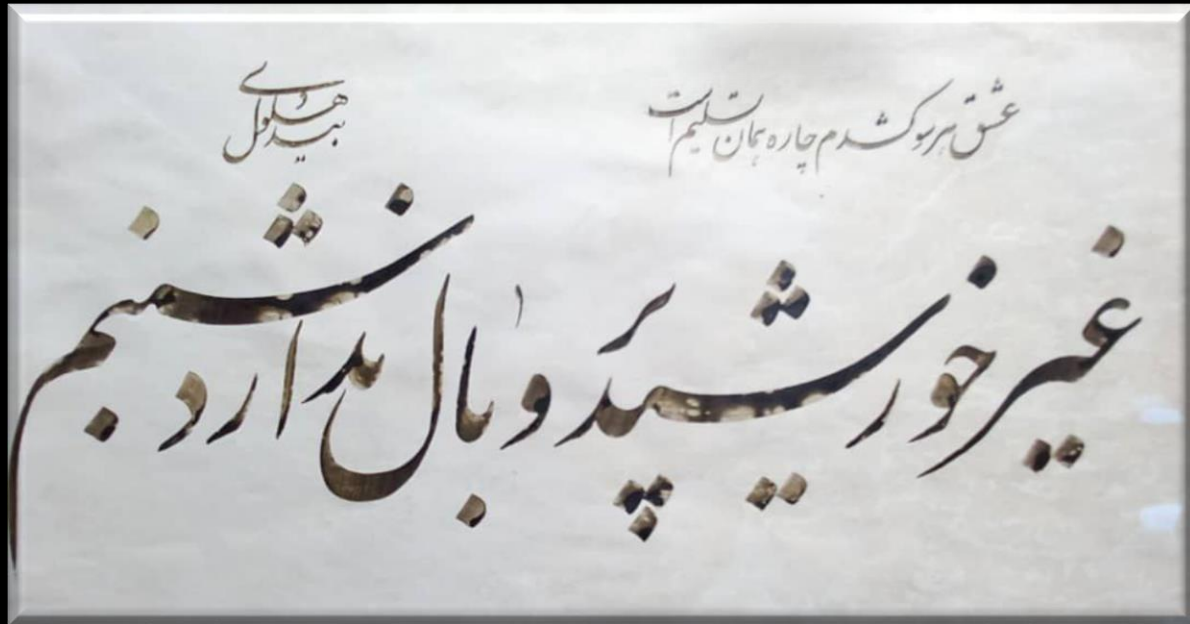 عشق هر سو کشدم چاره همان تسلیم است
بیدل دهلوی
غیر خورشید پر و بال ندارد شبنم